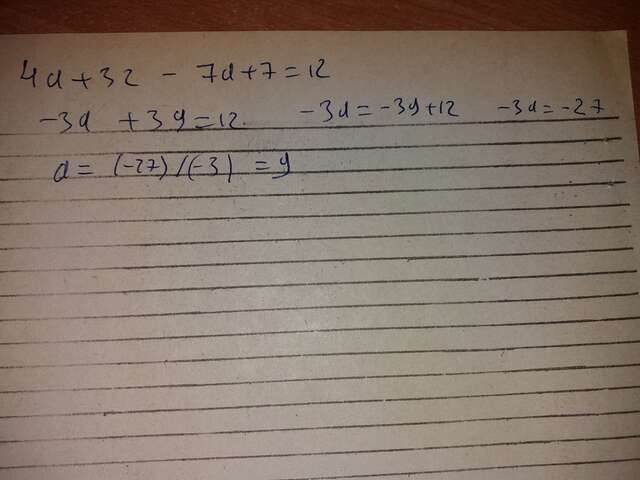 4a+32-7a+7=12
-3a+39=12 -3a=-39+12 -3a=-27
a=(-27)/(-3)=9